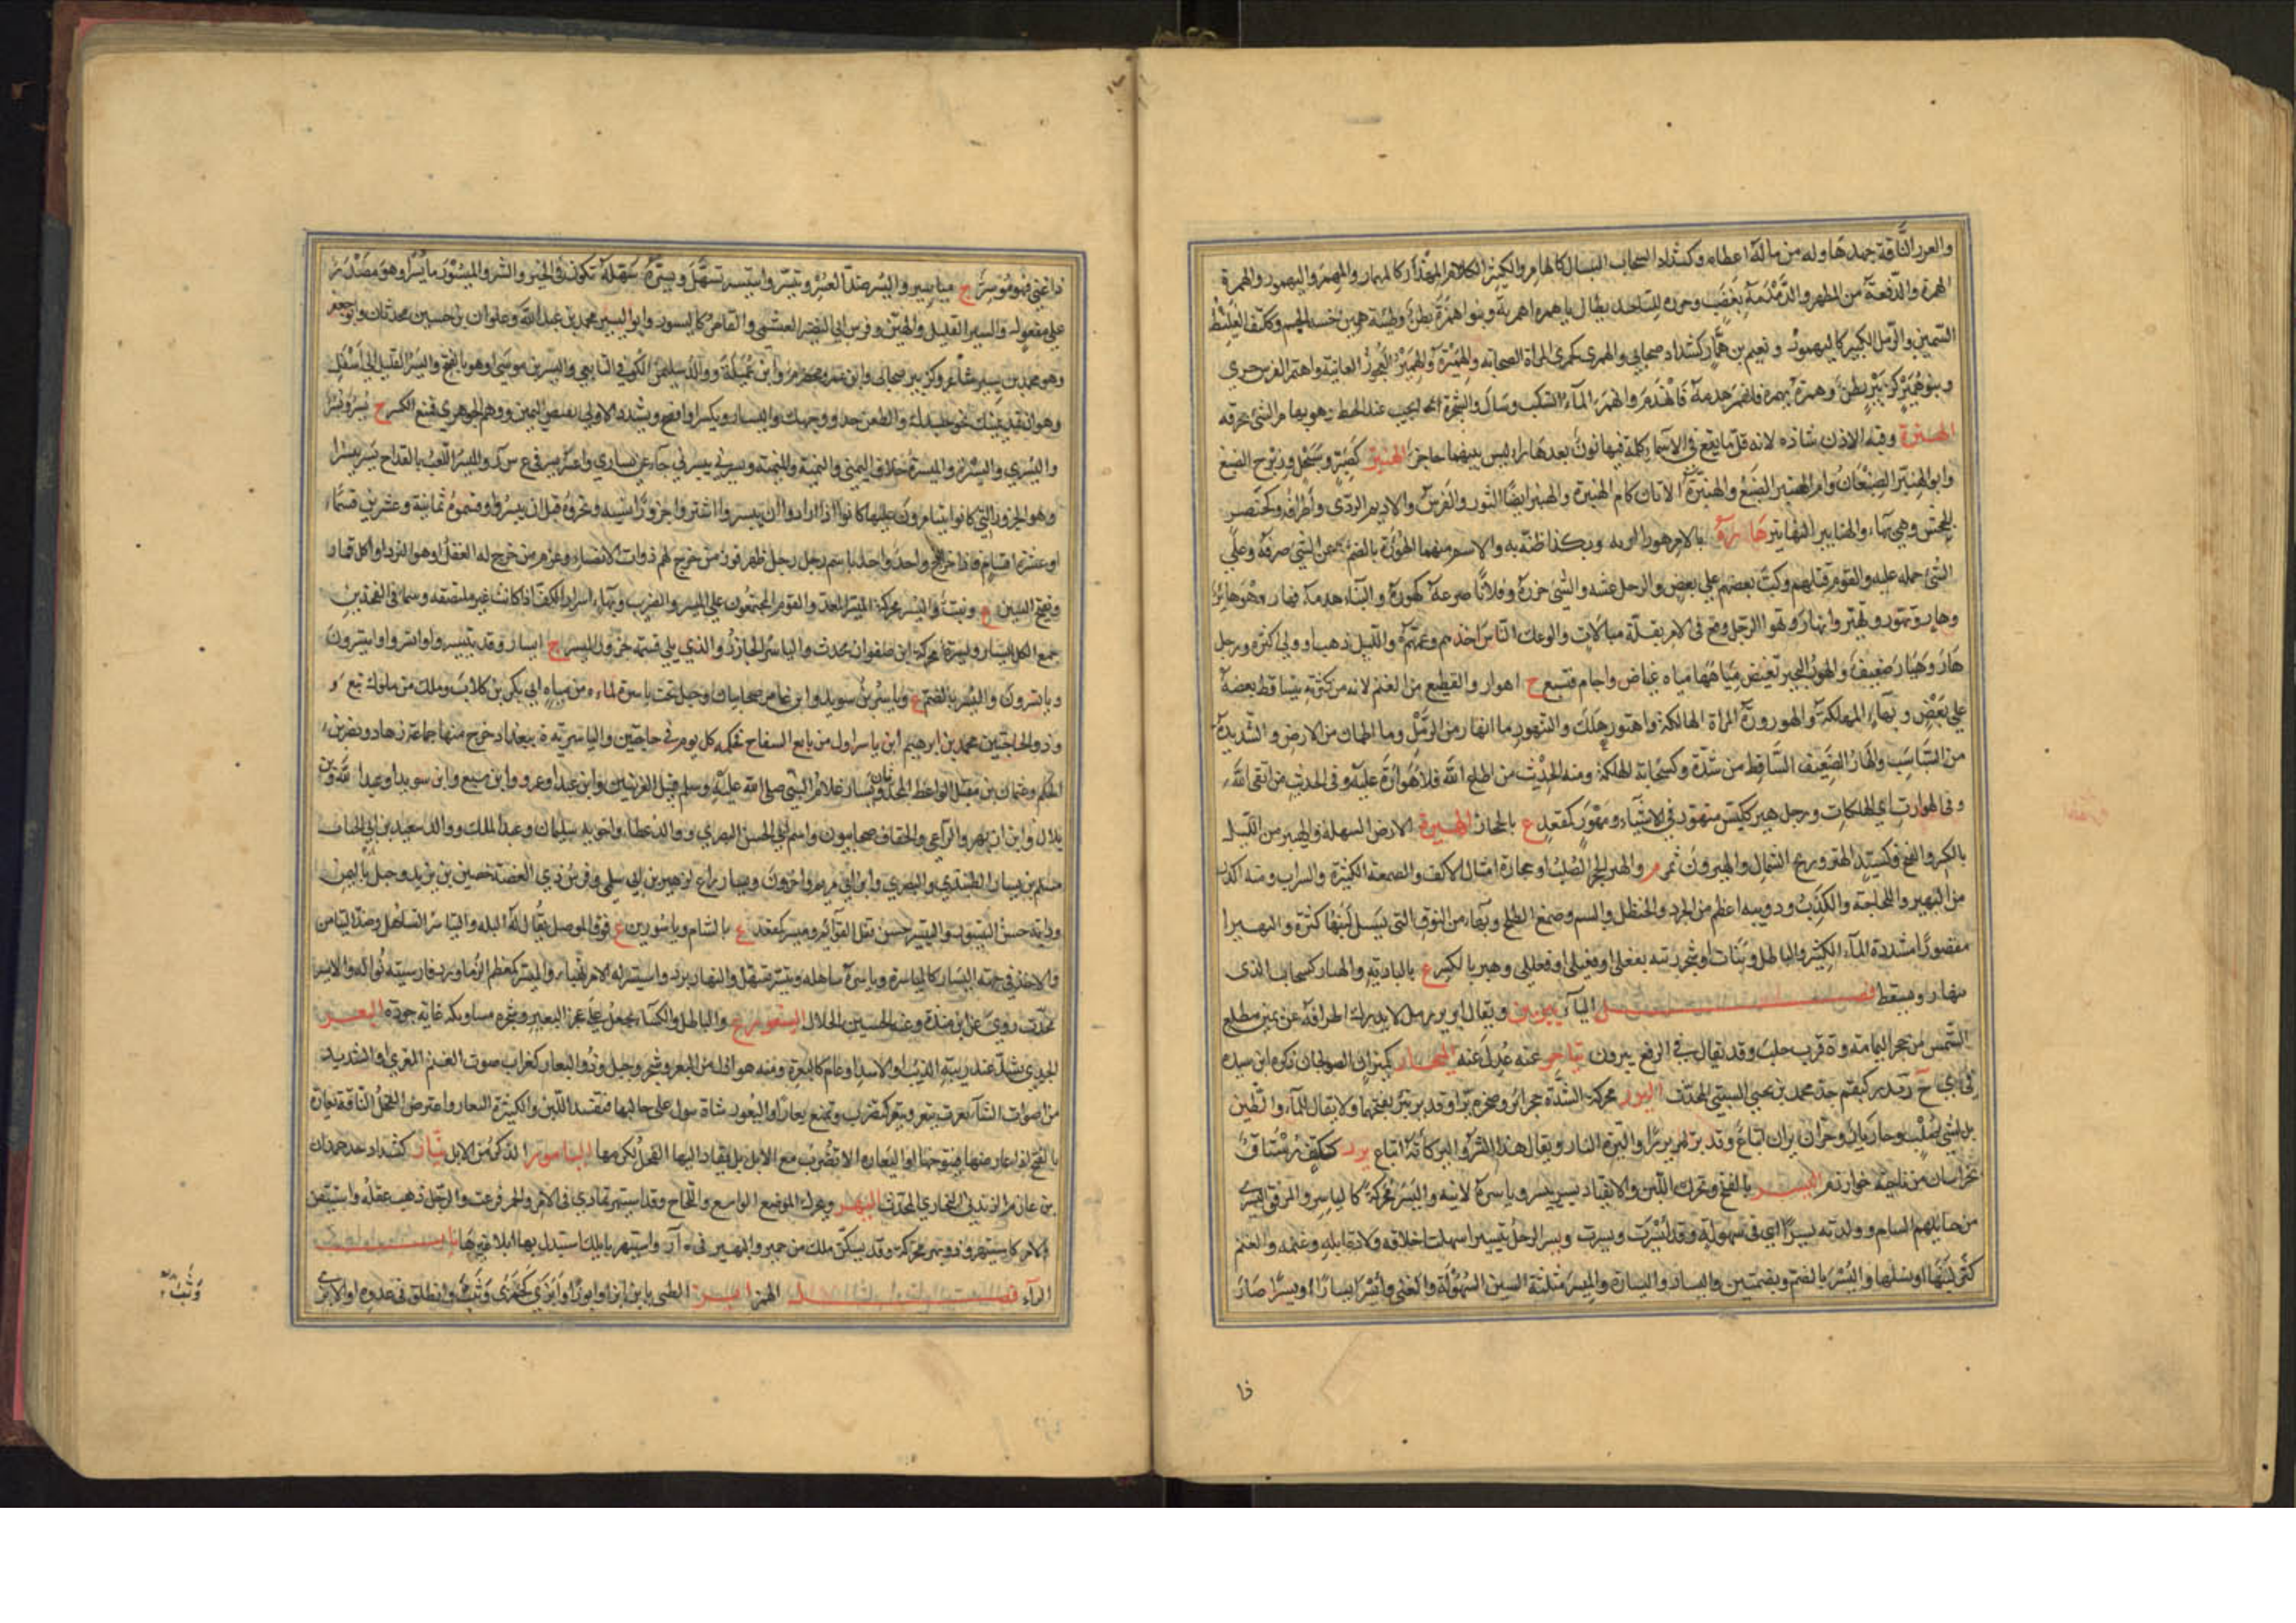 والغرر الناقة جهدها وله من ماله اعطاه وكشداد السحاب السيال كالهامر والكثير الكلام المهذار كالمهمار والمهمر واليهمور والهمرة
الهمرة والدفعة من المطر والدمدمة بغضب وخرزة للتاخيد يقال يا همرة اهمريه وبنو همرة بطن وظبية همير حسنة الجسم وككتف الغليظ
السمين والرمل الكثير كاليهمور ونعيم بن همار كشداد صحابي والهمرى كجمزى المراة الصخابة والهميرة والهمير العجوز الفانية واهتمر الفرس جرى
وبنو همير كزبير بطن وهمرة يهمره فانهمر هدمه فانهدم وانهمر الماء انسكب وسال والشجرة انحتت عند الخبط وهو يهامر الشئ يجرفه
الهنرة وقبة الاذن شاذة لانه قل ما يقع في الاسماء كلمة فيها نون بعدها راء ليس بينهما حاجز الهنبر كصنبر وسبحل وزبرج الضبع
وابو الهنبر الضبعان وام الهنبر الضبع والهنبرة الاتان كام الهنبرة والهنبر ايضا الثور والفرس والاديم الردي واطرافه وكخنصر
للجحش وهي بهاء والهنابير النهابير هاره بالامر هورا ازنه وبكذا ظنه به والاسم منهما الهورة بالضم وعن الشئ صرفه وعلى
الشئ حمله عليه والقوم قتلهم وكب بعضهم على بعض والرجل غشه والشئ حزره وفلانا صرعه كهوره والبناء هدمه فهار وهو هائر
وهار وتهور وتهير وانهار وتهور الرجل وقع في الامر بقلة مبالات والوعك الناس اخذهم وعمهم والليل ذهب او ولى اكثره ورجل
هار وهيار ضعيف والهور البحيرة تغيض مياهها مياه غياض واجام فتتسع ج اهوار والقطيع من الغنم لانه من كثرته يتساقط بعضه
على بعض وبهاء المهلكة والهورورة المراة الهالكة واهتور هلك والتيهور ما انهار من الرمل وما اطمان من الارض والشديد
من السباسب والهار الضعيف الساقط من شدة وكسحابة الهلكة ومنه الحديث من اطاع الله فلا هوارة عليه وفي الحديث من اتقى الله
وقي الهورات اي الهلكات ورجل هير ككيس متهور في الاشياء ومهور كمقعد ع بالحجاز الهيرة الارض السهلة والهير من الليل
بالكسر والفتح وكسيد الهتر وريح الشمال والهيرون تمر م واليهير الحجر الصلب او حجارة امثال الاكف والصمغة الكثيرة والسراب ومنه اكذب
من اليهير واللجاجة والكذب ودويبه اعظم من الجرذ والحنظل والسم وصمغ الطلح وبهاء من النوق التي يسيل لبنها كثرة واليهيرا
مقصورا مشددة الماء الكثير والباطل ونبات او شجر وزنه يفعلى او فعيلى او فعللى وهير بالكسر ع بالبادية والهيار كسحاب الذي
ينهار ويسقط فصل الياء يبرين ويقال ابرين رمل لا يدرك اطرافه عن يمين مطلع
الشمس من حجر اليمامة وة قرب حلب وقد تقال في الرفع يبرون يتاجر عنه عدل عنه اليحار كميزان الصولجان ذكره ابن سيده
في اي ج ر يدر كبقم جد محمد بن يحيى السبتي المحدث اليرر محركة الشدة حجر اير وصخرة يراء وقد ير يير بفتحهما ولا يقال للماء والطين
بل لشئ صلب وحار يار وحران يران اتباع وقد ير لهم يرا واليرة النار ويقال هذا الشر واليركانه اتباع يزر ككتف رستاق
بخراسان من ناحية خوارزم اليسر بالفتح ويحرك اللين والانقياد يسر ييسر وياسره لاينه واليسر محركة كالياسر والموفق لليسر
من حبائلهم السام وولدته يسرا اي في سهولة وقد ايسرت ويسرت ويسر الرجل تيسيرا سهلت اخلاقه ولادة ابله وغنمه والغنم
كثر لبنها او نسلها واليسر بالضم وبضمتين واليسار واليسارة والميسرة مثلثة السين السهولة والغنى وايسر ايسارا ويسرا صار
ذا
ذا غنى فهو موسر ج مياسير واليسر ضد العسر وتيسر واستيسر تسهل ويسره سهله تكون في الخير والشر والميسور ما يسر او هو مصدر
على مفعول واليسير القليل والهين وفرس ابي النضير العتشمي والقامر كاليسور وابو اليسير محمد بن عبد الله وعلوان بن حسين محدثان وابو جعفر
وهو محمد بن يسير شاعر وكزبير صحابي وابن عمرو مخضرم وابن عميلة ووالد سليمان الكوفي التابعي واليسر بن موسى او هو بالفتح واليسر الفتل الى اسفل
وهو ان تمد يمينك نحو جسدك والطعن حذو وجهك واليسار ويكسر او افصح ويشدد الاولى نقيض اليمين ووهم الجوهري فمنع الكسر ج يسر ويسر
واليسرى واليسرة والميسرة خلاف اليمنى واليمنة والميمنة ويسرني ييسرني جاء عن يساري واعسر يسر في ع س ر والميسر اللعب بالقداح يسر ييسر
وهو الجزور التي كانوا يتقامرون عليها كانوا اذا ارادوا ان ييسروا اشتروا جزورا نسيئة ونحروه قبل ان ييسروا وقسموه ثمانية وعشرين قسما
او عشرة اقسام فاذا خرج واحد واحد باسم رجل رجل ظهر فوز من خرج لهم ذوات الانصباء وغرم من خرج له الغفل او هو النرد او كل قمار
وفتح السين ع ونبت واليسر محركة الميسر المعد والقوم المجتمعون على الميسر والضريب وبهاء اسرار الكف اذا كانت غير ملتصقة وسمة في الفخذين
جمع الكل ايسار ويسرة محركة ابن صفوان محدث والياسر الجازر والذي يلي قسمة جزور الميسر ج ايسار وقد تيسروا واتسروا وايتسروا
وياتسرون واليسر بالضم ع وياسر بن سويد وابن عامر صحابيان وجبل تحت ياسرة لماءة من مياه ابي بكر بن كلاب وملك من ملوك تبع و
وذو الحاجتين محمد بن ابرهيم ابن ياسر اول من بايع السفاح فحكمه كل يوم في حاجتين والياسرية ة ببغداد خرج منها جماعة زهاد ونصر بن
الحكم وعثمان بن مقبل الواعظ المحدثان ويسار غلام النبي صلى الله عليه وسلم قتيل العرنيين وابن عبد او عمرو وابن سبع وابن سويد او عبد الله وابن
بلال وابن ازيهر والراعي والخفاف صحابيون واسم ابي الحسن البصري ووالد عطاء واخويه سليمان وعبد الملك ووالد سعيد بن ابي الحباب
مسلم بن يسار الطنبذي والبصري وابن ابي مريم واخرون ويسار راع لزهير بن ابي سلمى وفرس ذي الغصة حصين بن يزيد وجبل باليمن
ودابة حسن التيسور والتيسير حسن نقل القوائم وميسر كمقعد ع بالشام وياسورين ع فوق الموصل يقال له البلد والتياسر التساهل وضد التيامن
والاخذ في جهة اليسار كالمياسرة وياسره ساهله وتيسر تسهل والنهار برد واستيسر له الامر تهيا والميسر كمعظم الزماورد فارسيته نواله والايسر
محدث روى عن ابن مندة وعنه الحسين الخلال اليستعور ع والباطل والكساء يجعل على عجز البعير وشجر مساويكه غاية جودة اليعر
الجدي يشد عند زبية الذئب او الاسد او عام كاليعرة ومنه هو اذل من اليعر وشجر وجبل ود واليعار كغراب صوت الغنم المعزى او الشديد
من اصوات الشاء يعرت تيعر وتيعر كتضرب وتمنع يعارا واليعور شاة تبول على حالبها فتفسد اللبن والكثيرة اليعار واعترض الفحل الناقة يعارة
بالفتح اذا عارضها فتنوخها او اليعارة الا تضرب مع الابل بل يقاد اليها الفحل لكرمها اليامور الذكر من الايل يناز كشداد جد حمدان
بن عازم الزندني البخاري المحدث اليهر ويحرك الموضع الواسع واللجاج وقد استيهر تمادى في الامر والحمر فزعت والرجل ذهب عقله واستيقن
بالامر كاستيهر وذو يهر محركة وقد يسكن ملك من حمير واليهير في ه ر واستيهر بابلك استبدل بها ابلا غيرها باب
الزاء فصل الهمز ابز الظبي يابز ابزا وابوزا وابزى كجمزى وثب وانطلق في عدوه او الابز
وثب